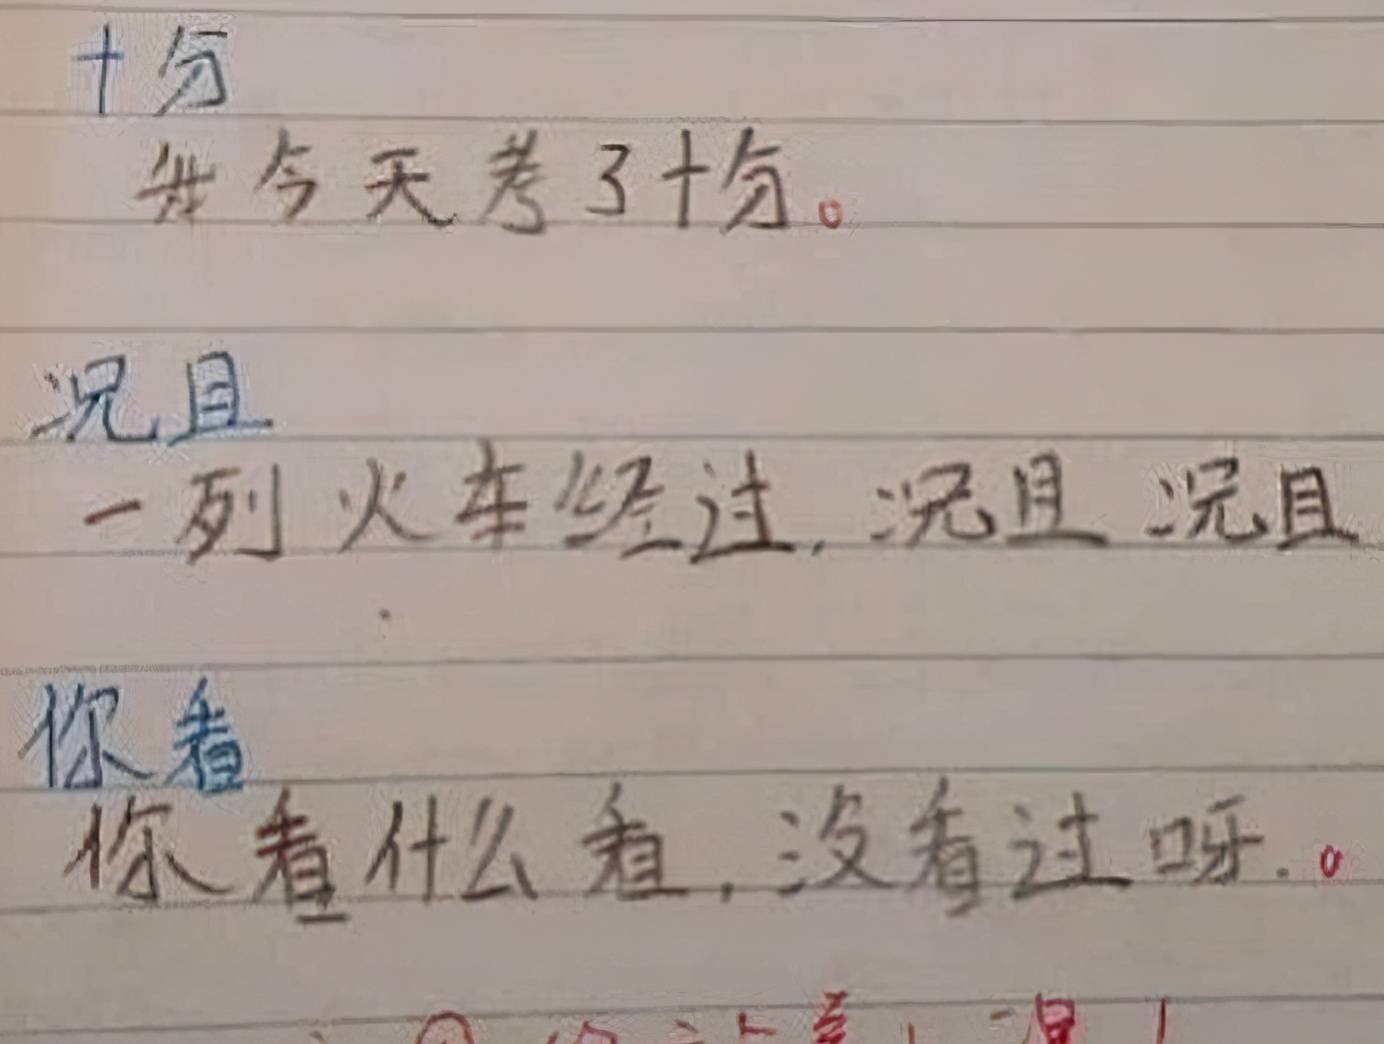 十分
我今天考了十分。
况且
一列火车经过,况且况且
你看
你看什么看,没看过呀.。